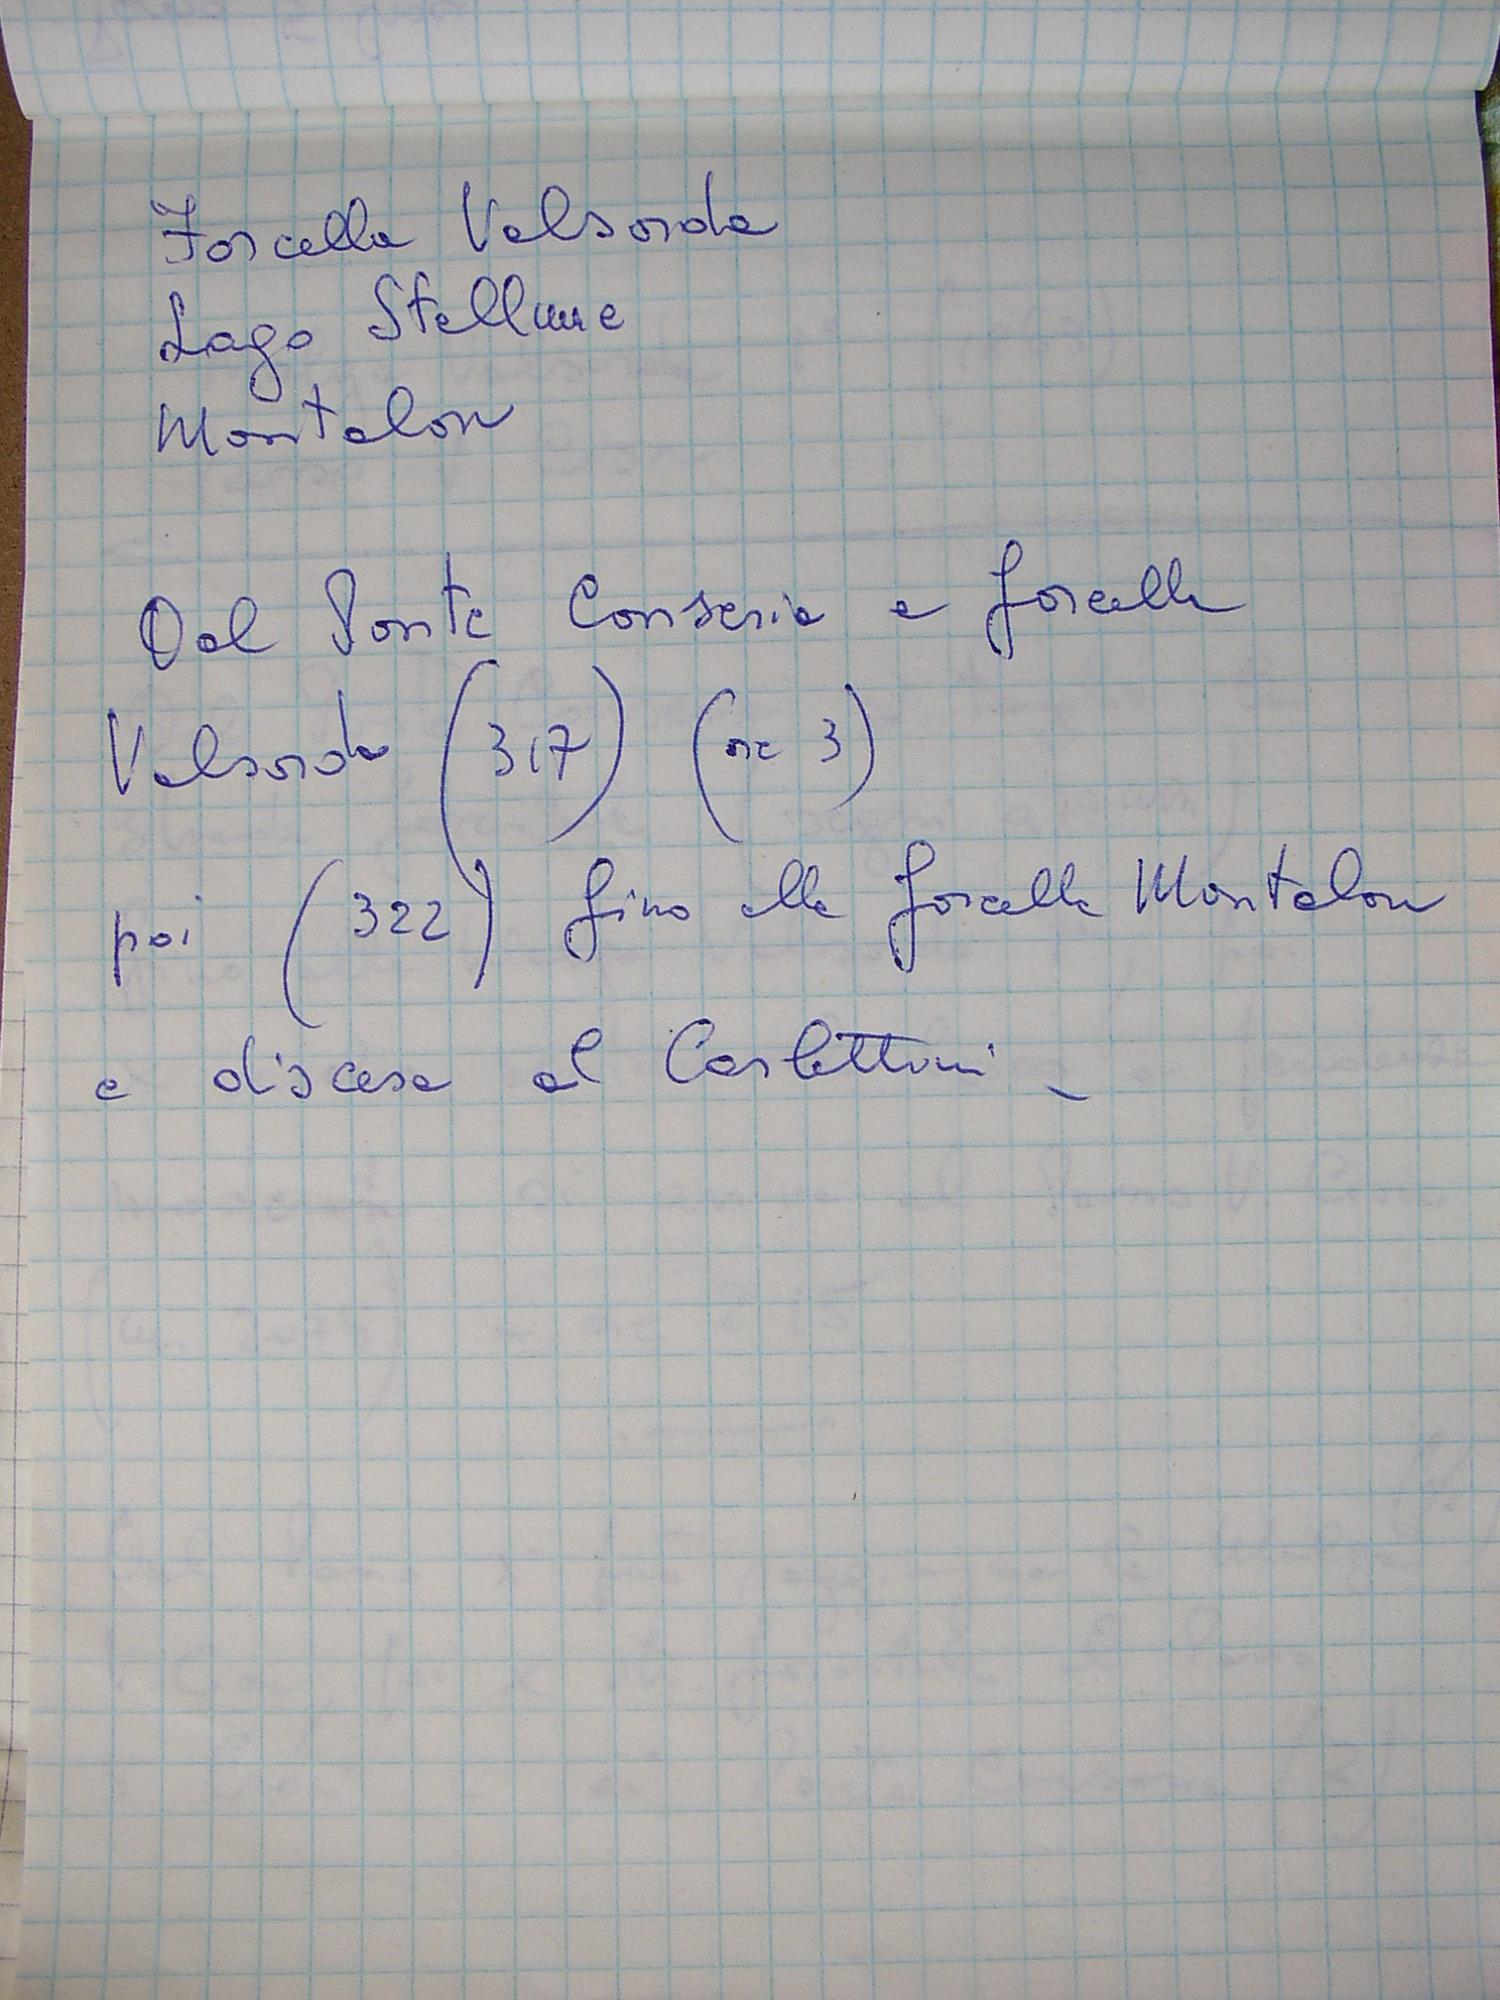 Forcella Valsorda
Lago Stellune
Montalon
Dal Ponte Conseria a forcella
Valsorda (317) (ore 3)
poi (322) fino alla forcella Montalon
e discesa al Carlettini -